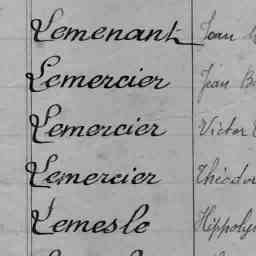 Lemenant Jean
Lemercier Jean B
Lemercier Victor
Lemercier Théodor
Lemesle Hippoly